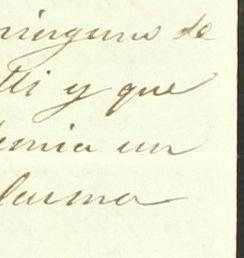 ninguno de
lli y que
tenia un
larma